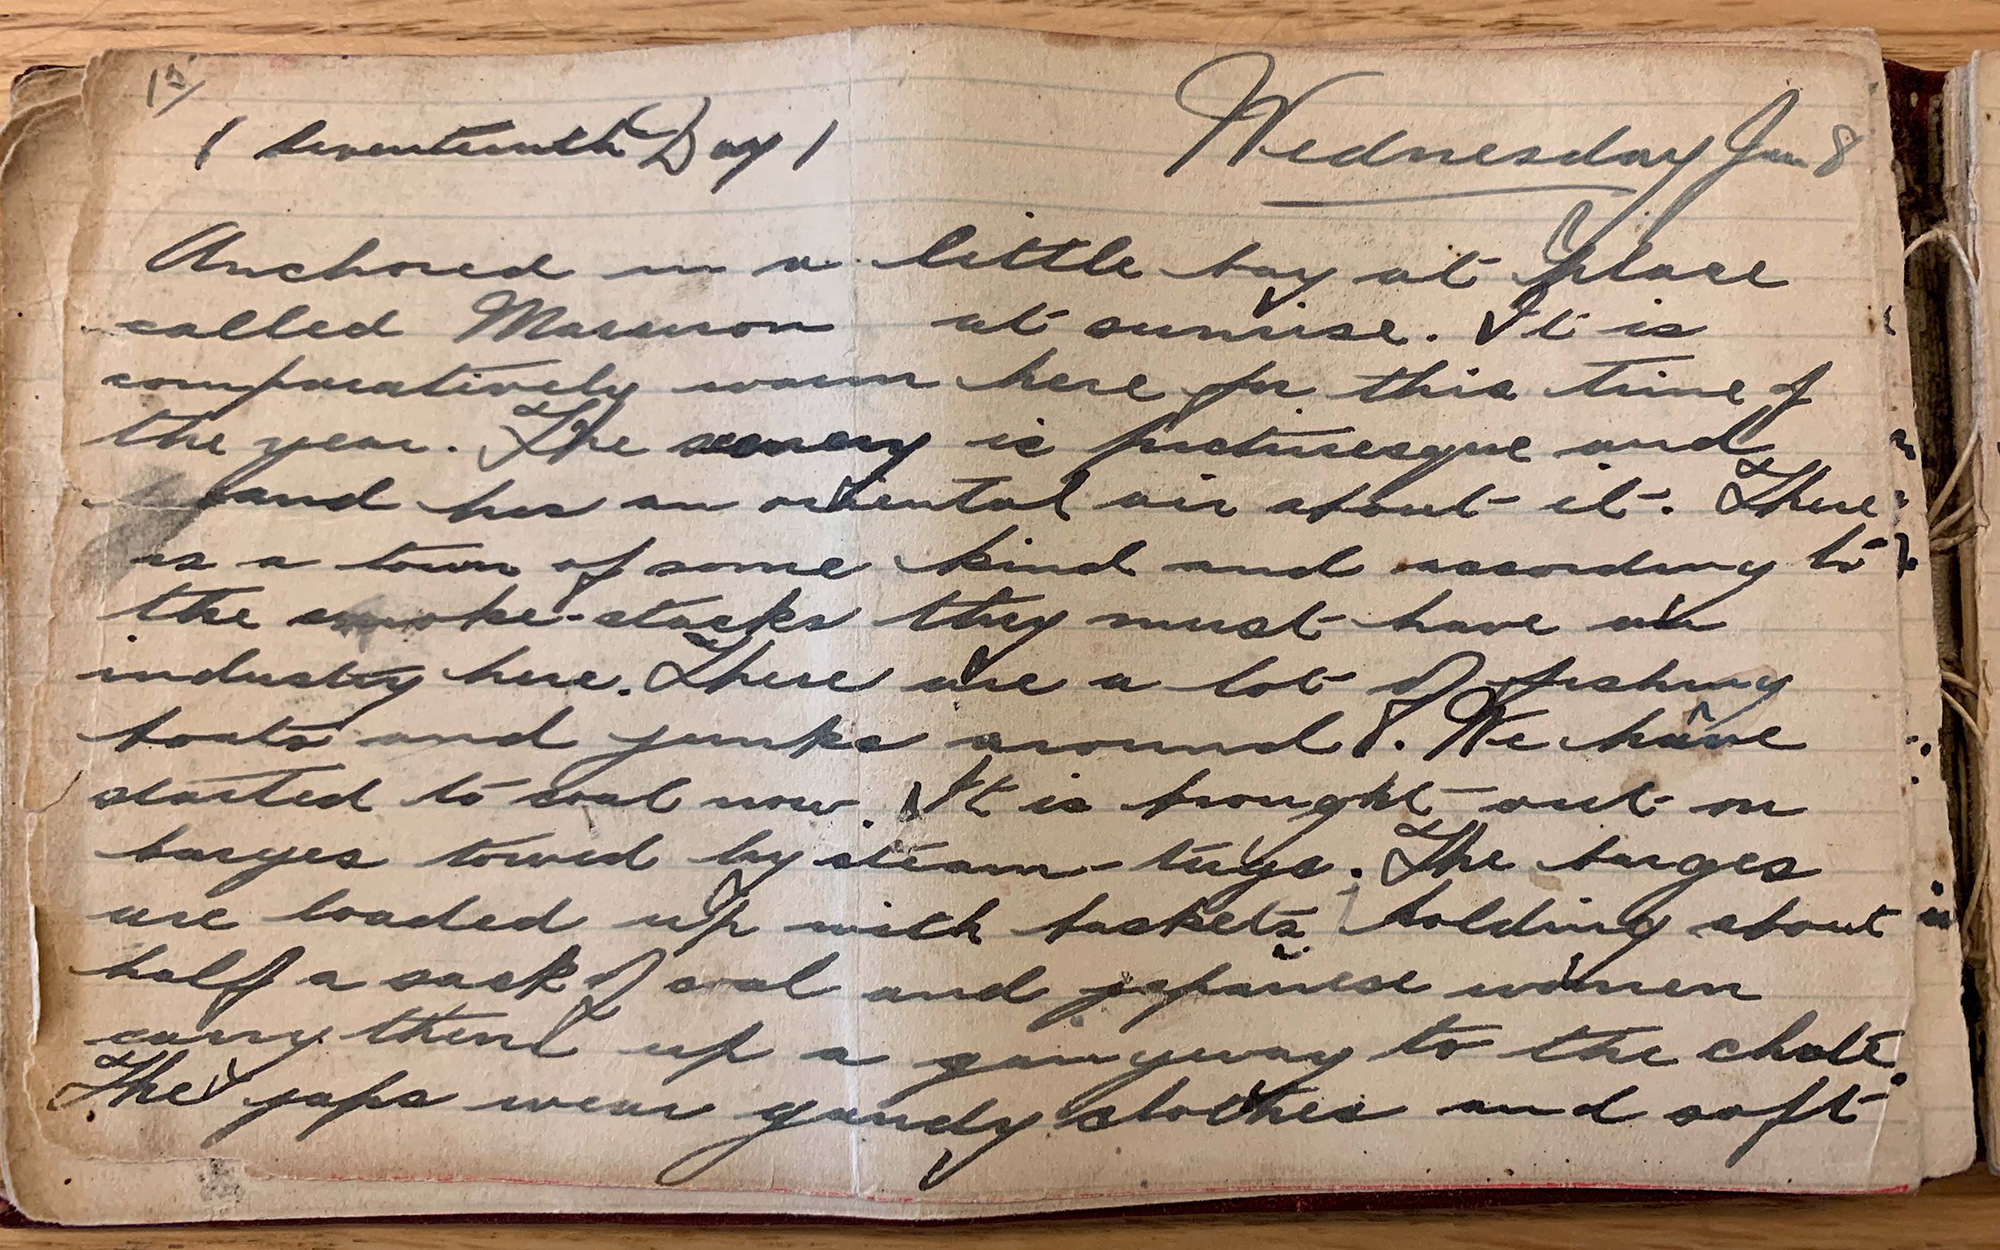 15
( Seventeenth Day )
Wednesday Jan 8
Anchored in a little bay at place
called Maruron at sunrise. It is
comparatively warm here for this time of
the year. The scenery is picturesque and
and has an oriental air about it. There
is a town of some kind and according to
the smoke-stacks they must have an
industry here. There are a lot of fishing
boats and junks around. We have
started to coal now. It is brought out on
barges towed by steam-tugs. The barges
are loaded up with baskets holding about
half a sack of coal and japanese women
carry them up a gangway to the chute.
The japs wear gaudy clothes and soft